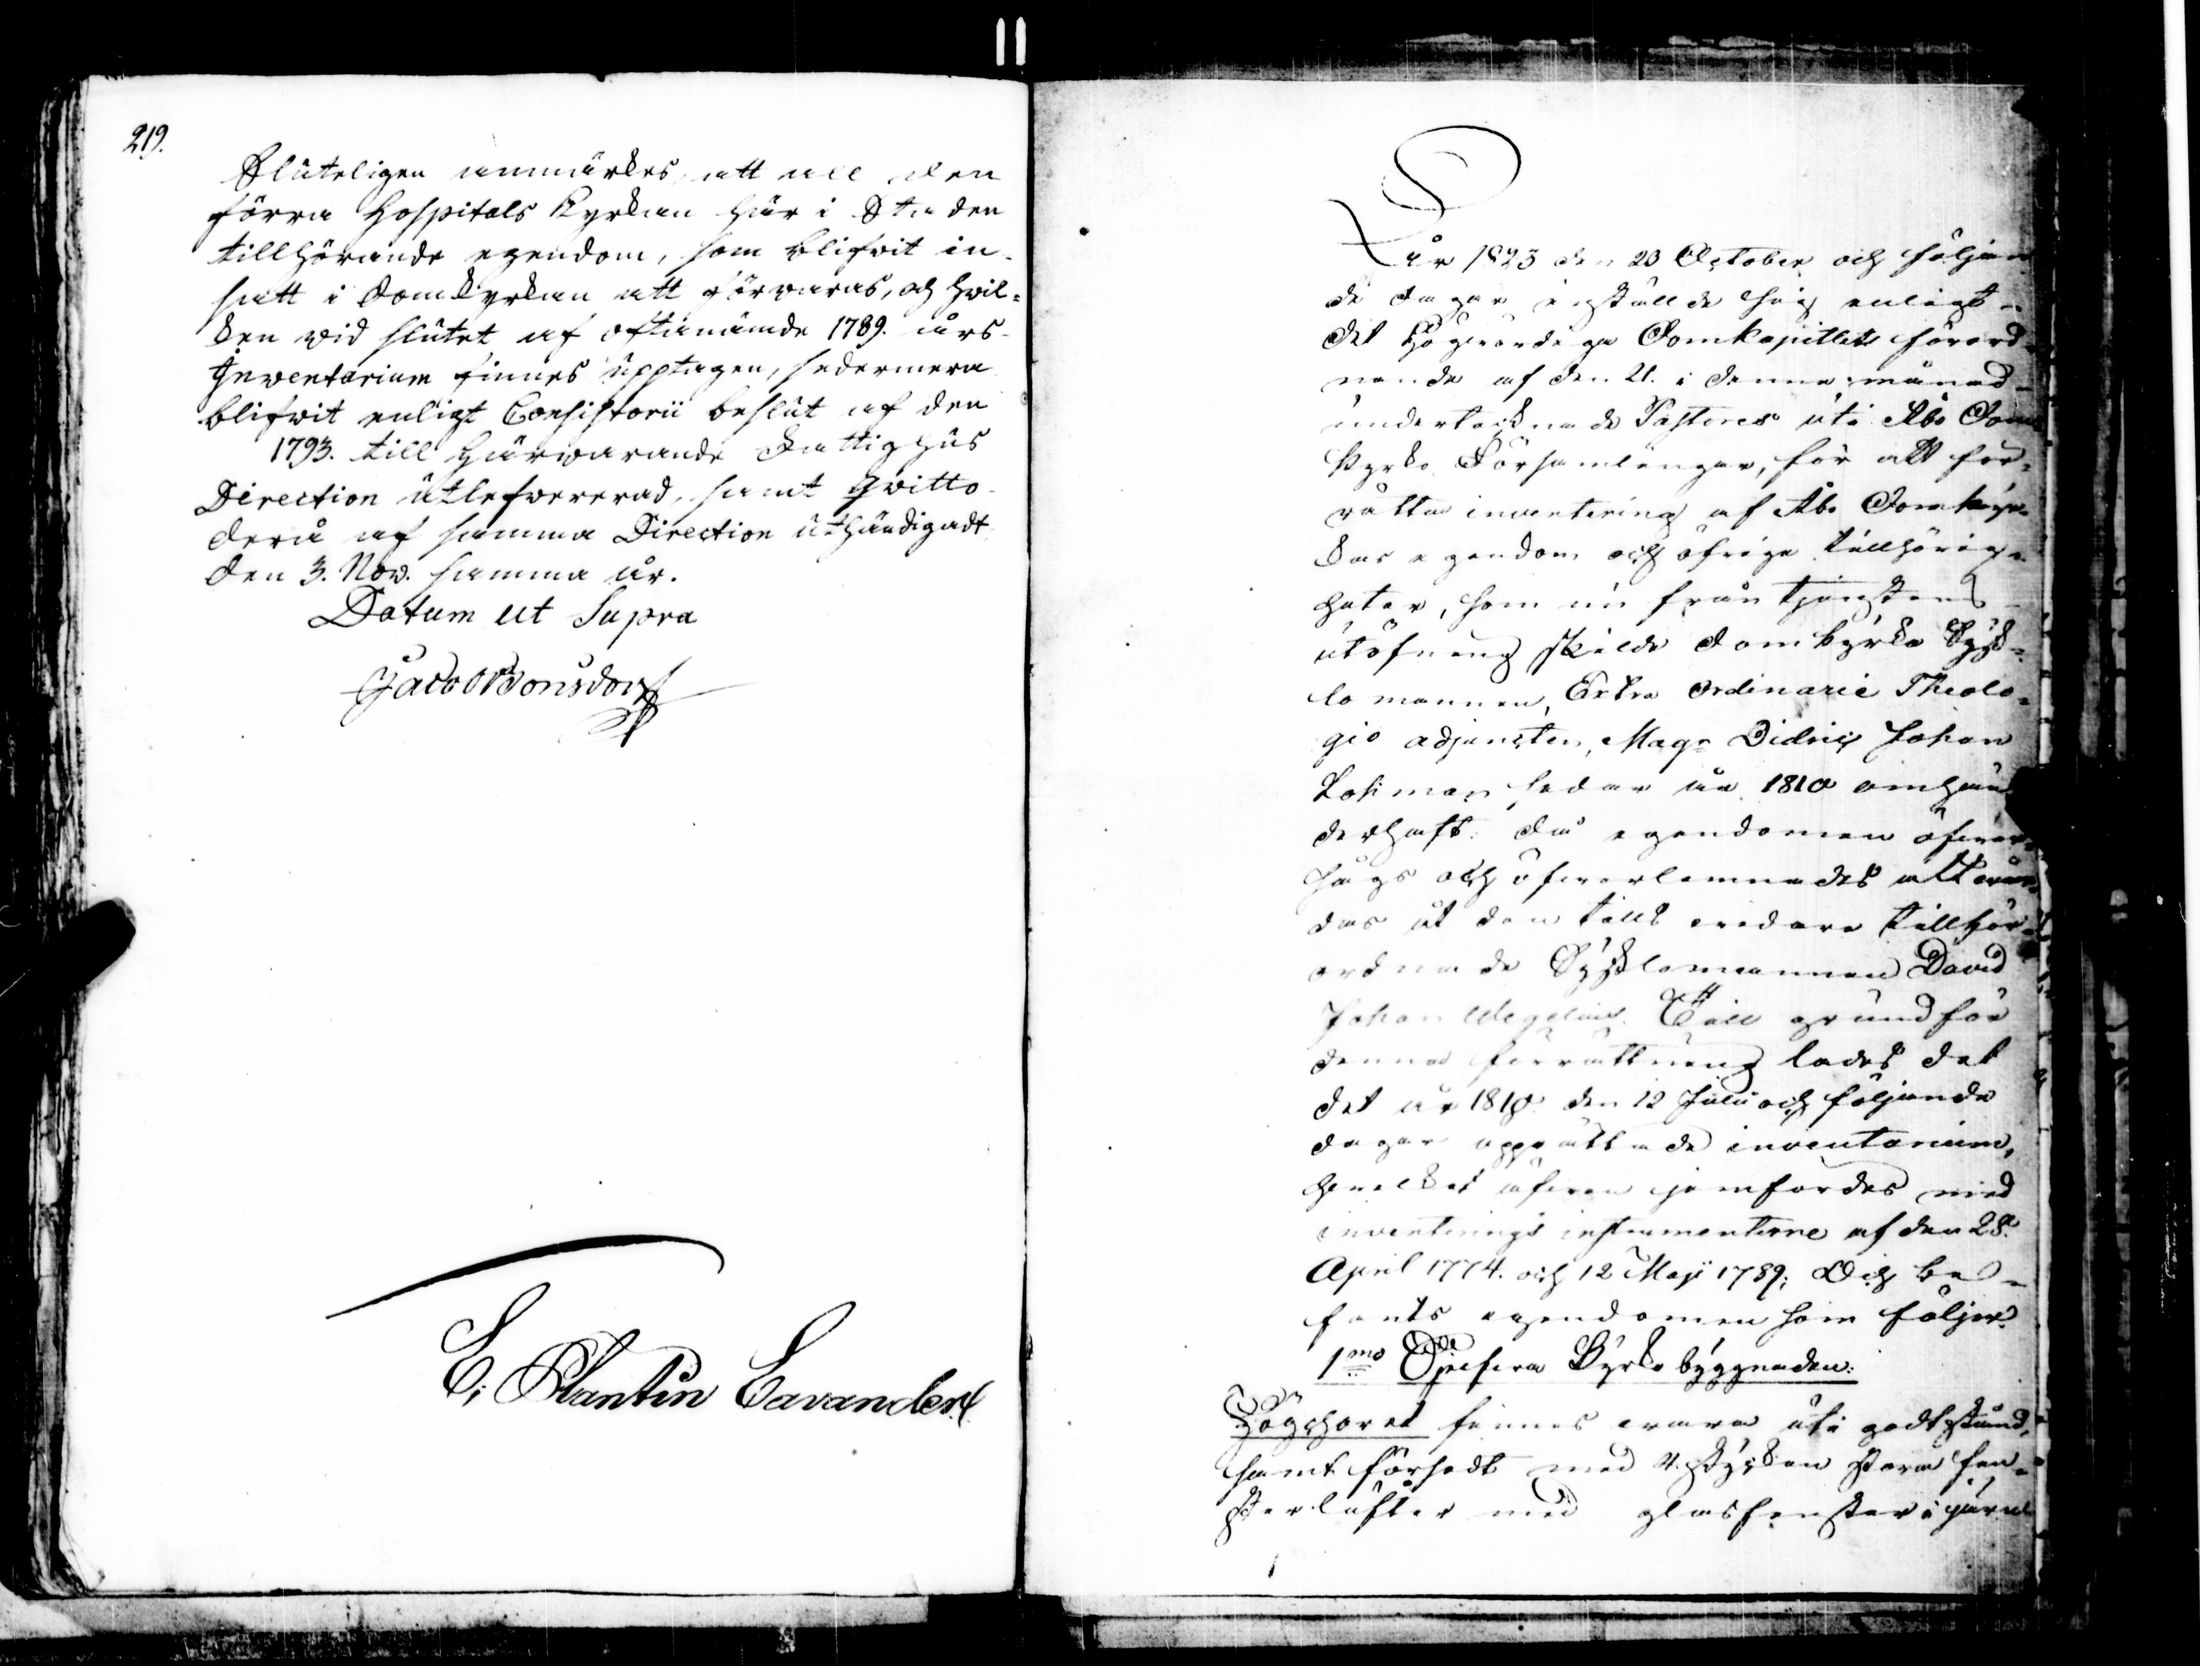 219.
Sluteligen anmärkes, att all den
förra Hospitals Kyrkan här i Staden
tillhörande egendom, som blifvit in-
satt i Domkyrkan att förvaras, och hvil-
ken vid slutet af oftanämde 1789. års
Inventarium finnes upptagen, sedermera
blifvit enligt Consistorii beslut af den
1793. till härvarande Fattighus
Direction utlefvererad, samt Qvitto
derå af samma Direction uthändigadt
den 3. Nov. samma år.
Datum ut Supra
Jacob Bonsdorff
E. Plantin Cavander
År 1823 den 23 October och följan
de dagar instälde sig enligt
det Högvördiga Domkapitlets förord-
nande af den 21. i denna månad
undertecknade Pastores uti Åbo Dom
kyrko Församlingar, för att för-
rätta inventering af Åbo Domkyr-
kas egendom och öfriga tillhörig-
heter, som nu från tjenstens
utöfning skilde Domkyrko Syss-
lomannen, Extra Ordinarie Theolo-
gie adjuncten, Magr Didric Johan
Lohman sedan år 1810 omhän
derhaft: då egendomen öfver-
sågs och öfverlemnades att vår-
das åt den tills vidare tillför-
ordnade Sysslomannen David
Johan Wegelius. Till grund för
denna förrättning lades det
det år 1810 den 12 Julii och följande
dagar upprättade inventarium,
hvilket äfven jemfördes med
inventerings instrumenterne af den 28.
April 1774. och 12 Maji 1789; Och be-
fants egendomen som följer.
1mo Sjelfva Kyrkobyggnaden.
Högchoret finnes vara uti godt stånd,
samt försedt med 4. stycken stora fen-
sterlufter med glasfenster i järn